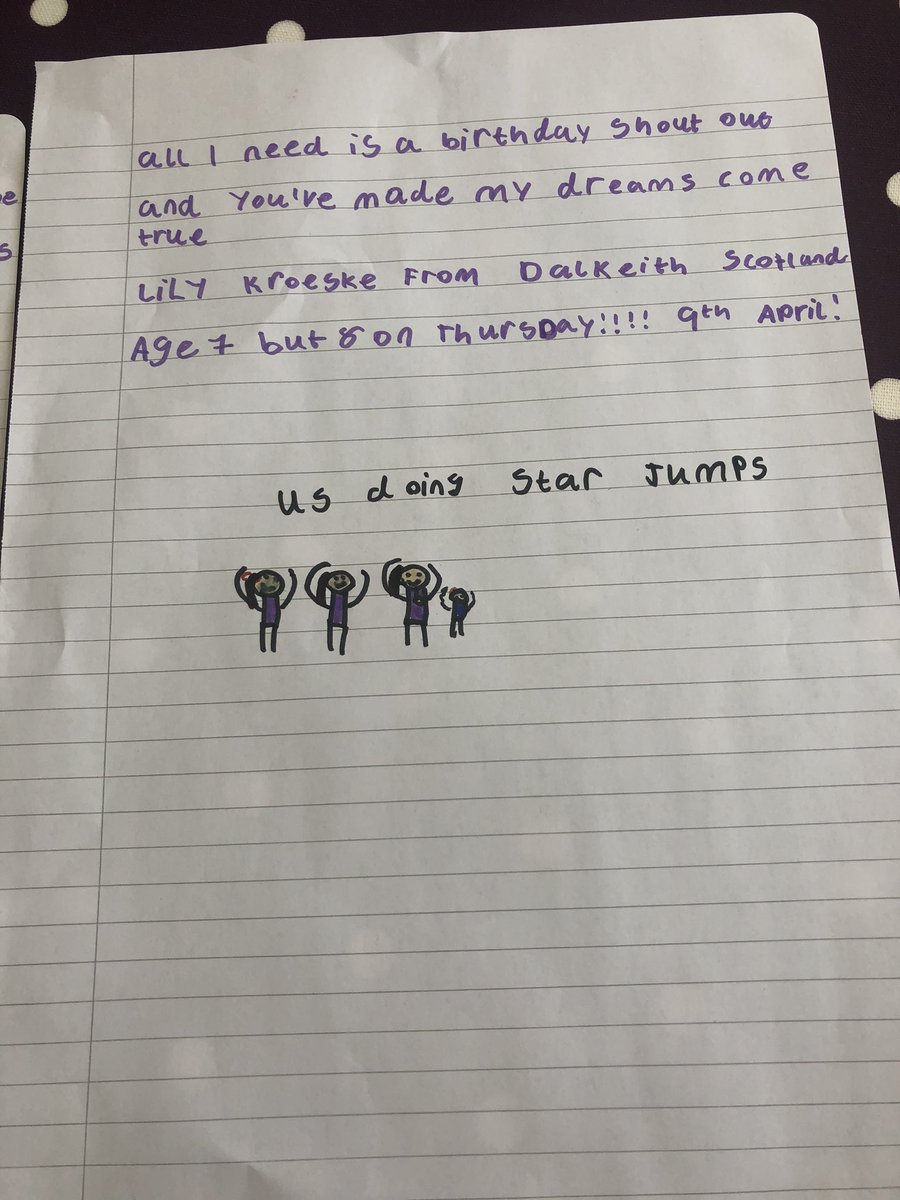 all I need is a birthday shout out
and You've made my dreams come
true
LiLY Kroeske From Dalkeith Scotland
Age 7 but 8 on Thursday!!!! 9th April!
us doing star Jumps